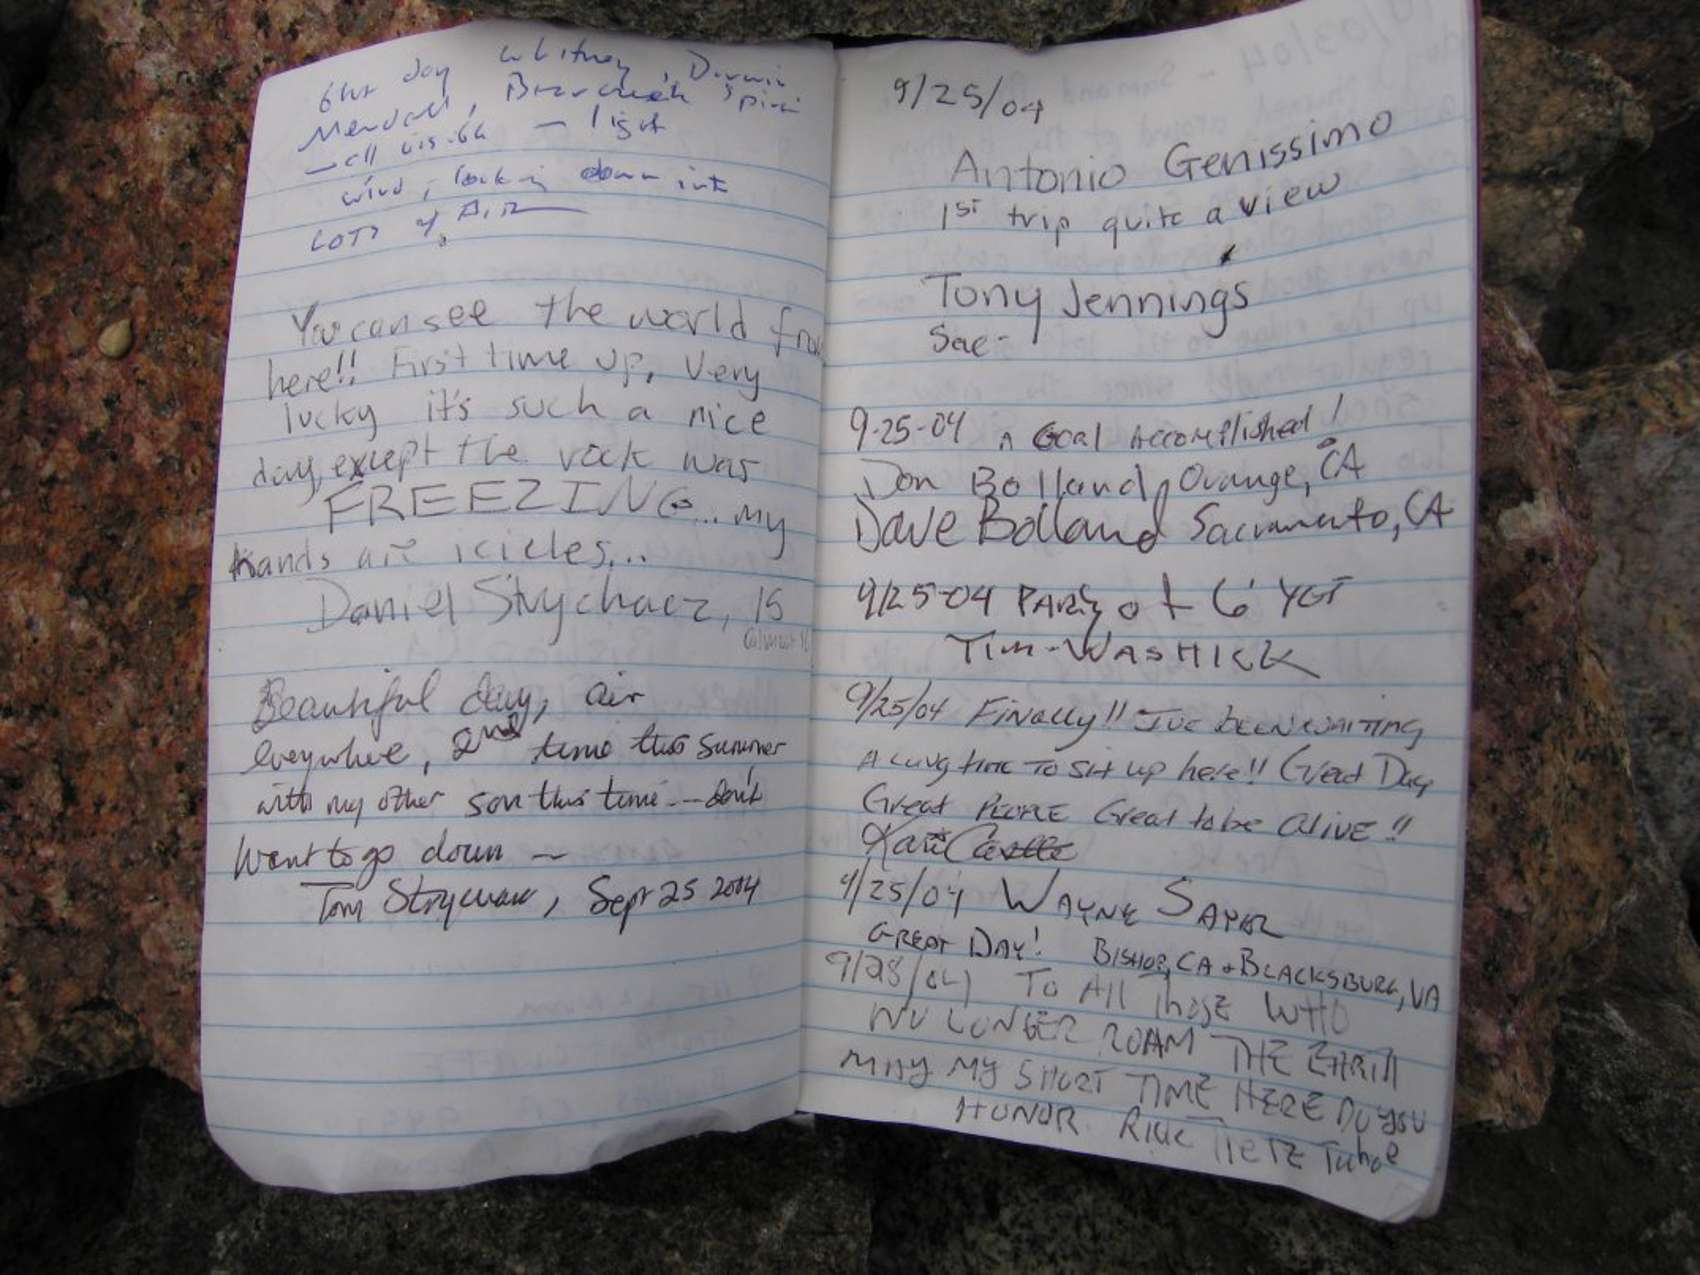 6hr day Whitney, Darwin
Mendel, Bear Creek Spire
— all visible — light
wind, looking down into
LOTS of AIR
You can see the world from
here!! First time up, very
lucky it's such a nice
day, except the rock was
FREEZING... my
hands are icicles...
Daniel Strychacz, 15
(almost 16)
Beautiful day, air
everywhere, 2nd time this summer
with my other son this time -- don't
want to go down —
Tom Strychacz, Sept 25 2004
9/25/04
Antonio Genissimo
1st trip quite a view
Tony Jennings
Sac-
9-25-04 A Goal Accomplished!
Don Bolland, Orange, CA
Dave Bolland Sacramento, CA
9/25-04 PARTY of 6 YGT
Tim-WASHICK
9/25/04 Finally!! I've been waiting
A long time to sit up here!! Great Day
Great PEOPLE Great to be alive!!
Kate Castle
9/25/04 WAYNE SAYER
GREAT DAY! BISHOP, CA + BLACKSBURG, VA
9/28/04 To All Those WHO
NO LONGER ROAM THE EARTH
MAY MY SHORT TIME HERE DO YOU
HONOR. RICK TIETZ Tahoe